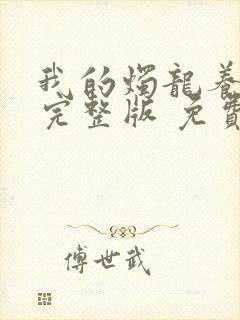 我的燭龍養
完整版 免費
傅世武